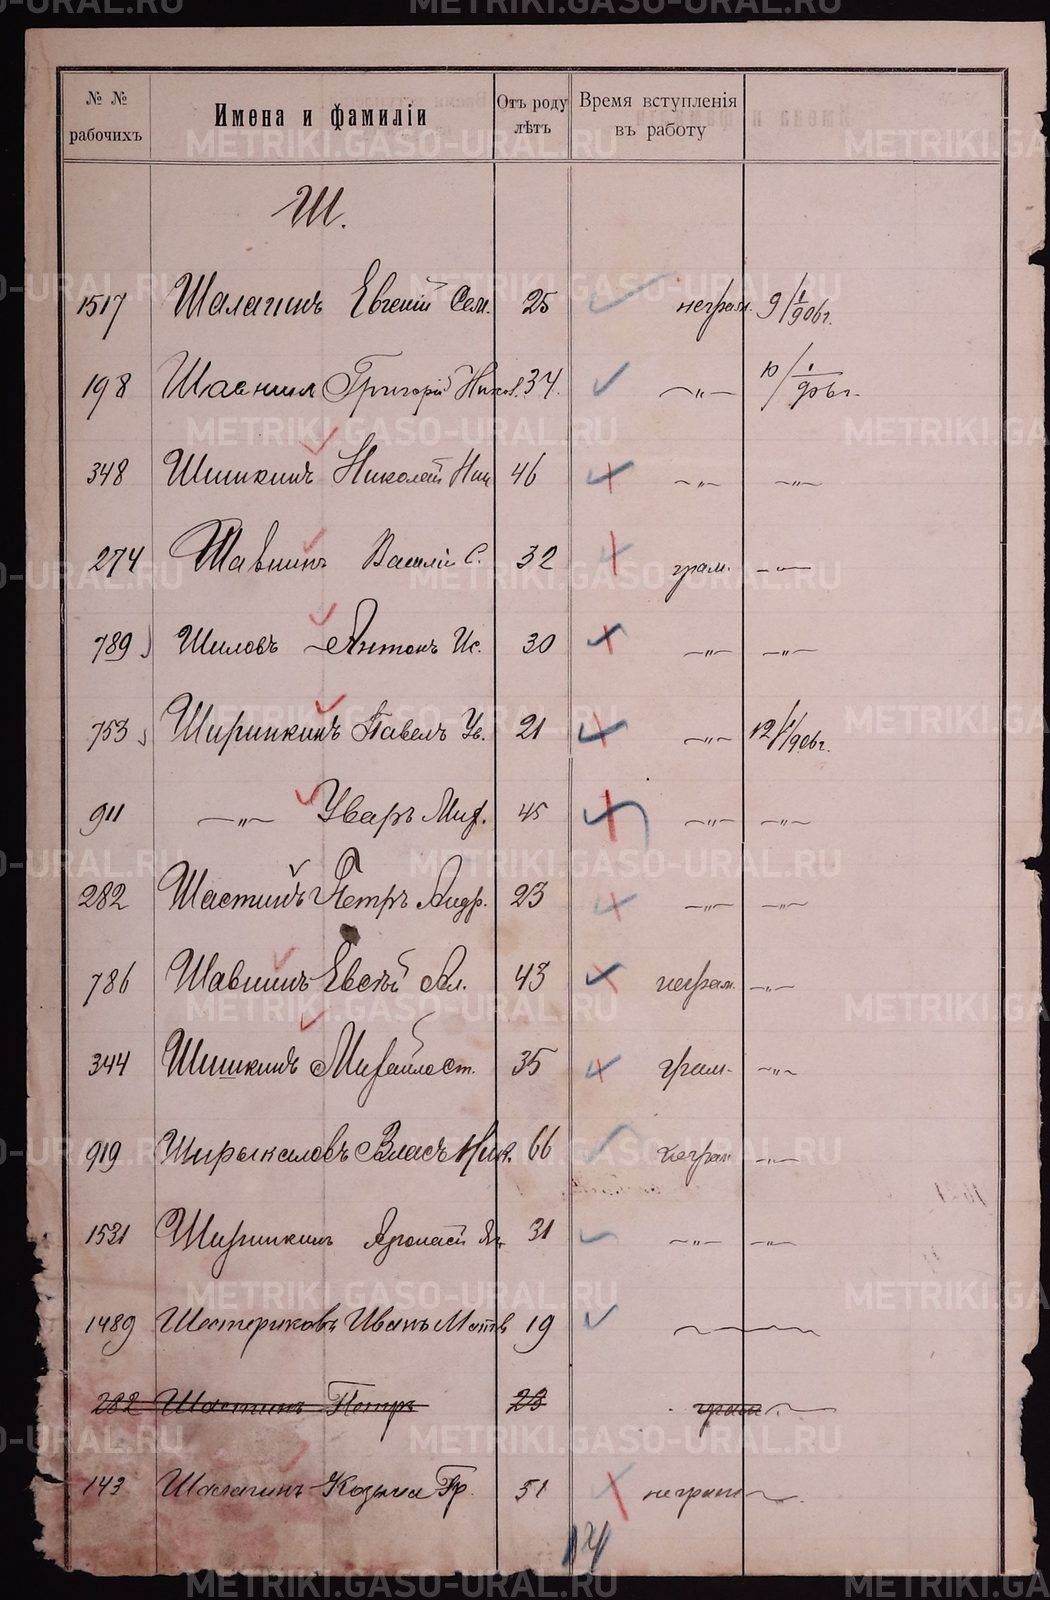 № № рабочихъ
Имена и фамиліи
Отъ роду лѣтъ
Время вступленія въ работу
Ш.
1517 Шалагинъ Евгеній Сем. 25 неграм. 9/I 906г.
198 Шавнин Григорій Никол. 34. —„— 10/I 906г.
348 Шишкинъ Николай Ник 46 —„— —„—
274 Шавнинъ Василій С. 32 грам. —„—
789 Шиловъ Антонъ Ис. 30 —„— —„—
753 Ширинкинъ Павелъ Ув. 21 —„— 12/I 906г.
911 —„— Уваръ Миф. 45 —„— —„—
282 Шастинъ Петръ Андр. 23 —„— —„—
786 Шавнинъ Евсѣй Ал. 43 неграм. —„—
344 Шишкинъ Михаилъ Ст. 35 грам. —„—
919 Шырыкаловъ Власъ Ник. 66 неграм —„—
1531 Ширинкинъ 31 —„— —„—
1489 Шестериковъ Иванъ Матв 19
282 Шастинъ Петръ 23 грам
143 Шалагинъ Козьма Гр. 51 неграм
14
METRIKI.GASO-URAL.RU